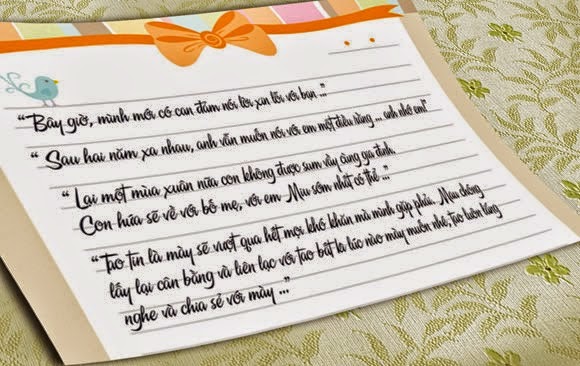 “Bây giờ, mình mới có can đảm nói lời xin lỗi với bạn ...”
“ Sau hai năm xa nhau, anh vẫn muốn nói với em một điều rằng ... anh nhớ em!”
“ Lại một mùa xuân nữa con không được sum vầy cùng gia đình.
Con hứa sẽ về với bố mẹ, với em Miu sớm nhất có thể ...”
“Tao tin là mày sẽ vượt qua hết mọi khó khăn mà mình gặp phải. Mau chóng
lấy lại cân bằng và liên lạc với tao bất kì lúc nào mày muốn nhé, tao luôn lắng
nghe và chia sẻ với mày ...”